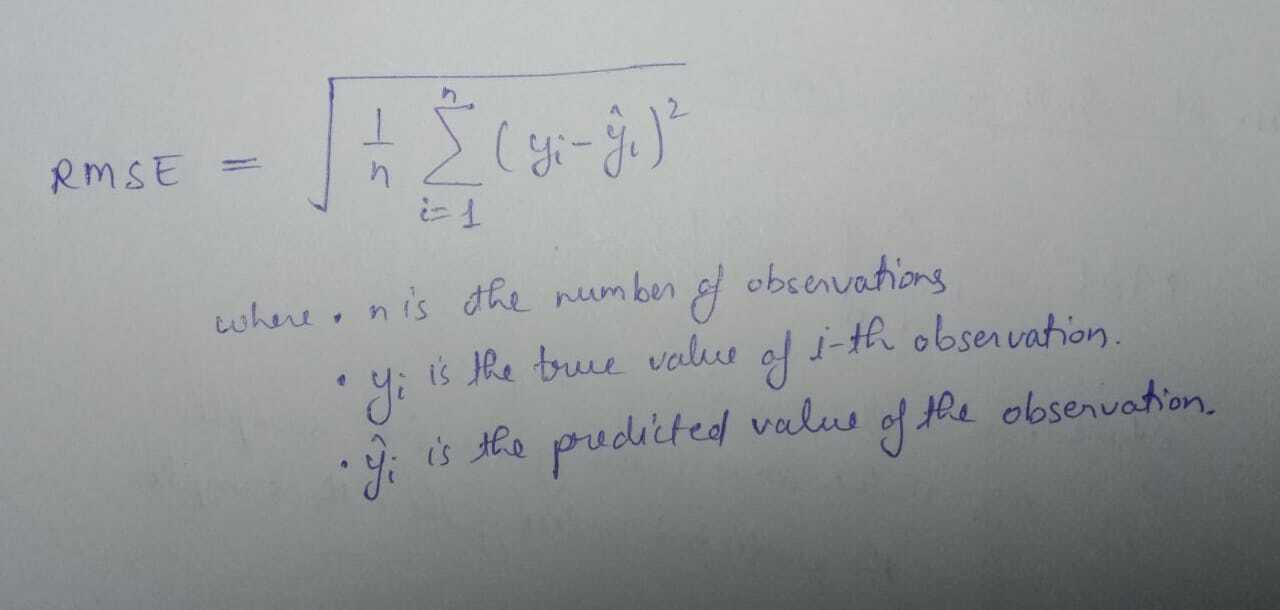 RMSE = √(1/n ∑ᵢ₌₁ⁿ (yᵢ - ŷᵢ)²)
where • n is the number of observations
• yᵢ is the true value of i-th observation.
• ŷᵢ is the predicted value of the observation.